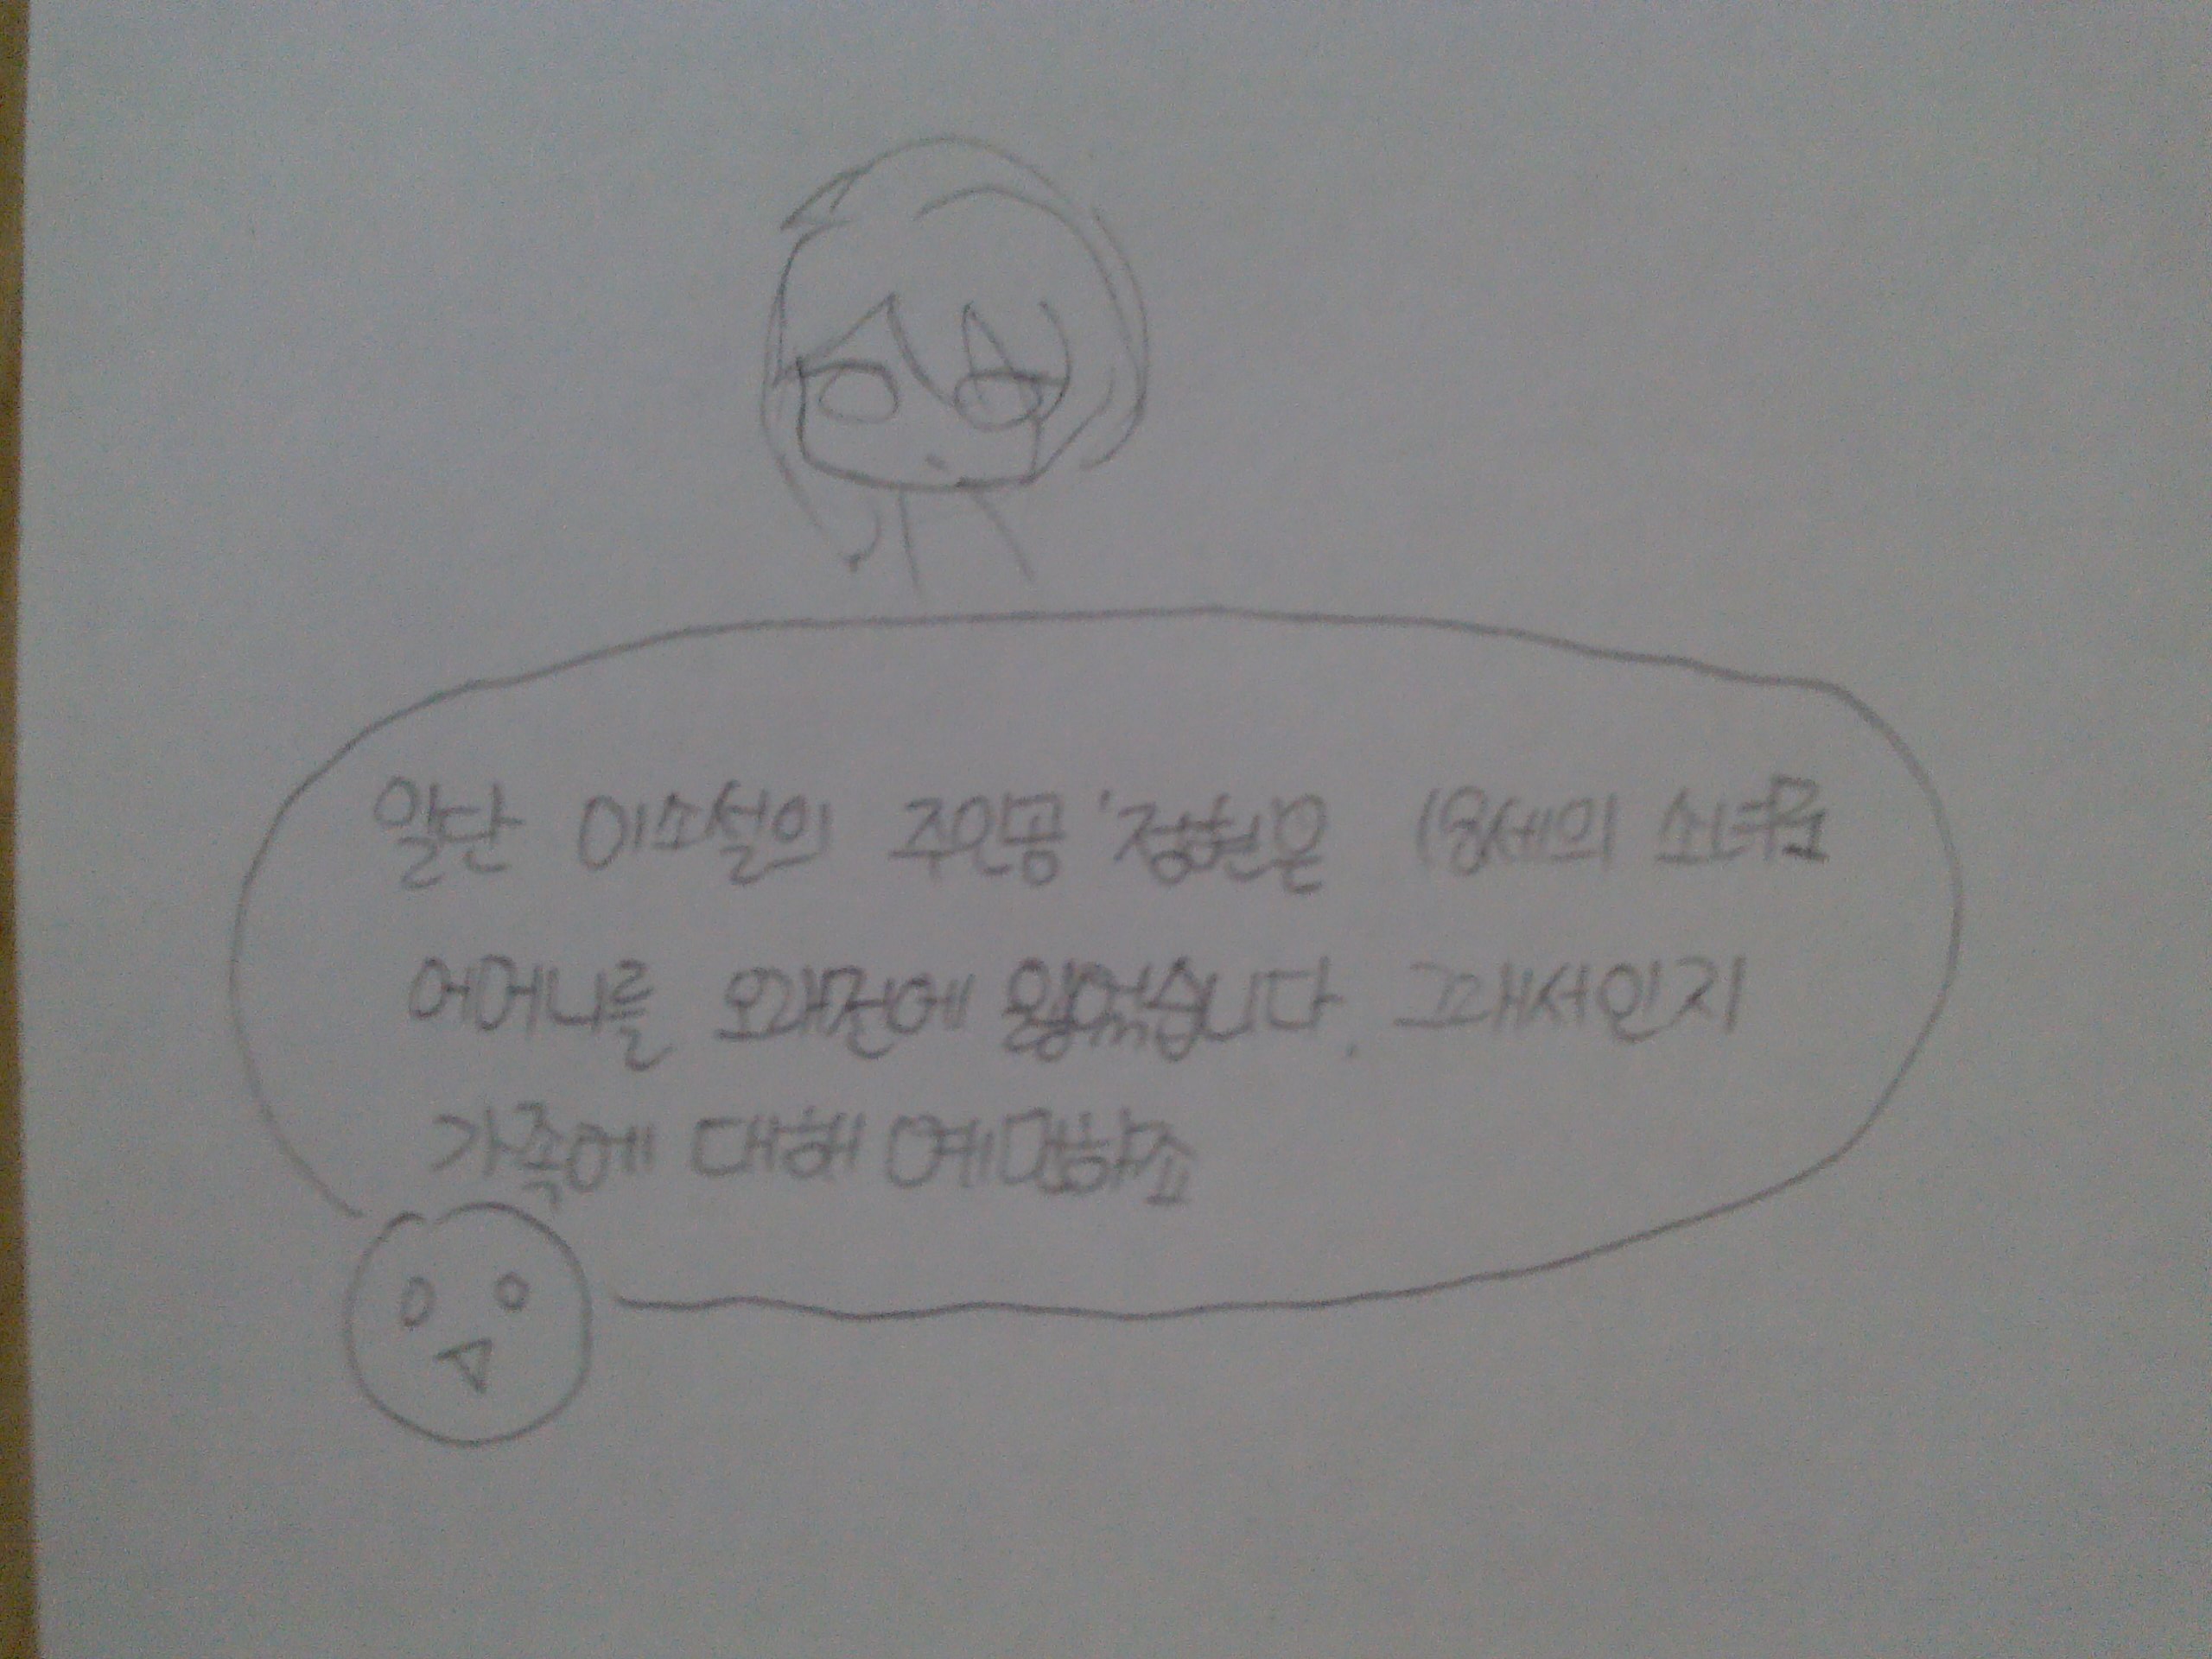 일단 이소설의 주인공 '정현은 18세의 소녀로
어머니를 오래전에 잃었습니다. 그래서인지
가족에 대해 예민하죠